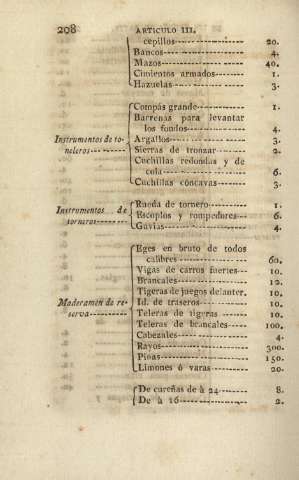 208 ARTICULO III.
cepillos 20.
Bancos 4.
Mazos 40.
Cimientos armados 1.
Hazuelas 3.
Compás grande 1.
Barrenas para levantar
los fundos 4.
Instrumentos de to- Argallos 3.
neleros Sierras de tronzar 2.
Cuchillas redondas y de
cola 6.
Cuchillas concavas 3.
Rueda de tornero 1.
Instrumentos de Escoplos y rompedores 6.
torneros Gavias 4.
Eges en bruto de todos
calibres 60.
Vigas de carros fuertes 10.
Brancales 12.
Tigeras de juegos delanter. 10.
Maderamen de re- Id. de traseros 10.
serva Teleras de tigeras 10.
Teleras de brancales 100.
Cabezales 4.
Rayos 300.
Pinas 150.
Limones ó varas 20.
De cureñas de à 24 8.
De à 16 2.